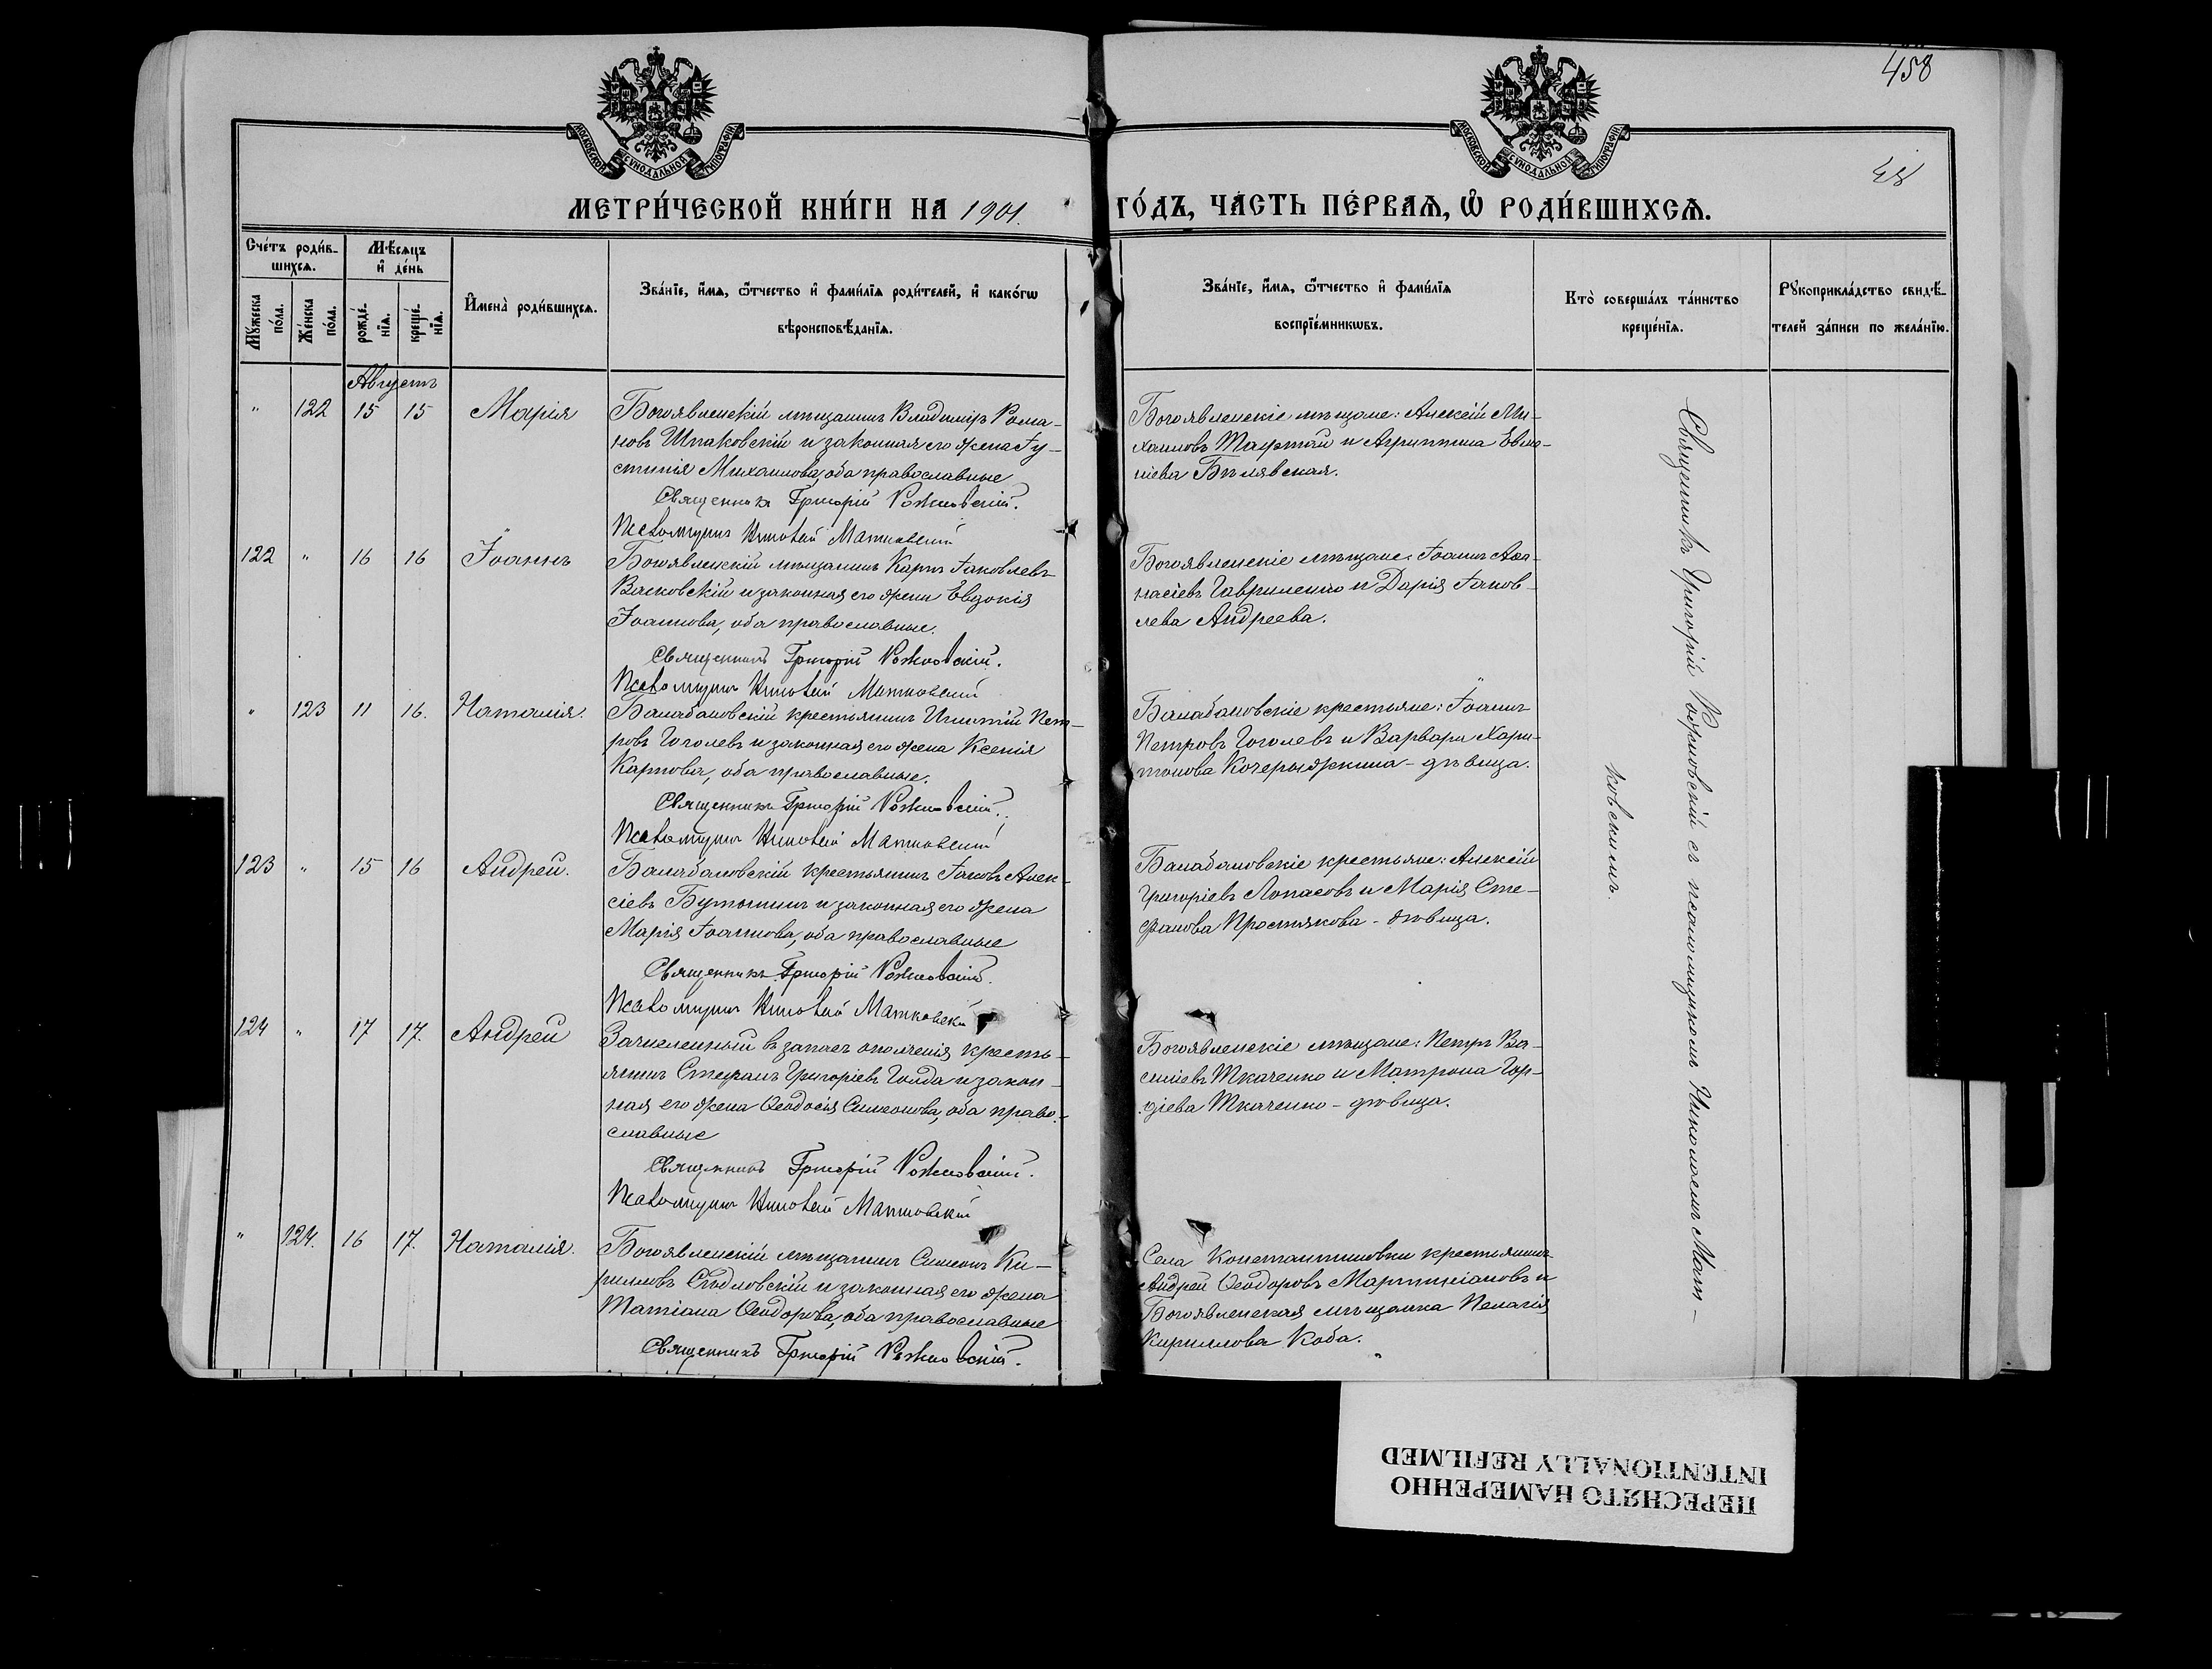 458
48
МОСКОВСКОЙ СУНОДАЛЬНОЙ ТИПОГРАФІИ
МОСКОВСКОЙ СУНОДАЛЬНОЙ ТИПОГРАФІИ
МЕТРИ́ЧЕСКОЙ КНИ́ГИ НА 1901. ГО́ДЪ, ЧА́СТЬ ПЕ́РВАѦ, Ѡ РОДИ́ВШИХСѦ.
Сче́тъ роди́в-
шихсѧ.
Мꙋжеска по́ла.
Же́нска по́ла.
Мѣ́сѧцъ
и҆ де́нь
рожде́-
нїѧ.
креще́-
нїѧ.
И҆мена̀ роди́вшихсѧ.
Зва́нїе, и҆́мѧ, ѻ҆́тчество и҆ фами́лїѧ роди́телей, и҆ како́гѡ
вѣроисповѣ́данїѧ.
Зва́нїе, и҆́мѧ, ѻ҆́тчество и҆ фами́лїѧ
воспрїе́мникѡвъ.
Кто̀ соверша́лъ та́инство
креще́нїѧ.
Рꙋкоприкла́дство свидѣ́-
телей за́писи по жела́нїю.
Августъ
" 122 15 15 Марія
Богоявленскій мѣщанинъ Владиміръ Рома-
новъ Шпаковскій и законная его жена Іу-
стинія Михаилова, оба православные
Священникъ Григорій Рожновскій.
Псаломщикъ Николай Матковскій
Богоявленскіе мѣщане: Алексій Ми-
хаиловъ и Агриппина Евме-
ніева Бѣлявская.
122 " 16 16 Іоаннъ
Богоявленскій мѣщанинъ Карпъ Іаковлевъ
Васковскій и законная его жена Евдокія
Іоаннова, оба православные.
Священникъ Григорій Рожновскій.
Псаломщикъ Николай Матковскій
Богоявленскіе мѣщане: Іоаннъ Аѳа-
насіевъ Гавриленко и Дарія Іаков-
лева Андреева.
" 123 11 16. Наталія.
Балабановскій крестьянинъ Игнатій Пет-
ровъ Гоголевъ и законная его жена Ксенія
Карпова, оба православные.
Священникъ Григорій Рожновскій.
Псаломщикъ Николай Матковскій
Балабановскіе крестьяне: Іоаннъ
Петровъ Гоголевъ и Варвара Хари-
тонова Кочерыжкина - дѣвица.
123 " 15 16 Андрей.
Балабановскій крестьянинъ Іаковъ Алек-
сіевъ Бутынинъ и законная его жена
Марія Іоаннова, оба православные
Священникъ Григорій Рожновскій.
Псаломщикъ Николай Матковскій
Балабановскіе крестьяне: Алексій
Григоріевъ Лопасовъ и Марія Сте-
фанова Простякова - дѣвица.
124 " 17 17. Андрей
Зачисленный въ запасъ ополченія кресть-
янинъ Стефанъ Григоріевъ Голда и закон-
ная его жена Ѳеодосія Симеонова, оба право-
славные
Священникъ Григорій Рожновскій.
Псаломщикъ Николай Матковскій
Богоявленскіе мѣщане: Петръ Ва-
силіевъ Ткаченко и Матрона Гор-
діева Ткаченко - дѣвица.
" 124. 16 17. Наталія.
Богоявленскій мѣщанинъ Симеонъ Ки-
рилловъ Сѣдловскій и законная его жена
Татіана Ѳеодорова, оба православные
Священникъ Григорій Рожновскій.
Села Константиновки крестьянинъ
Андрей Ѳеодоровъ Мартиніановъ и
Богоявленская мѣщанка Пелагія
Кириллова Коба.
Священникъ Григорій Рожновскій съ псаломщикомъ Николаемъ Мат-
ковскимъ.
ПЕРЕСНЯТО НАМЕРЕННО
INTENTIONALLY REFILMED